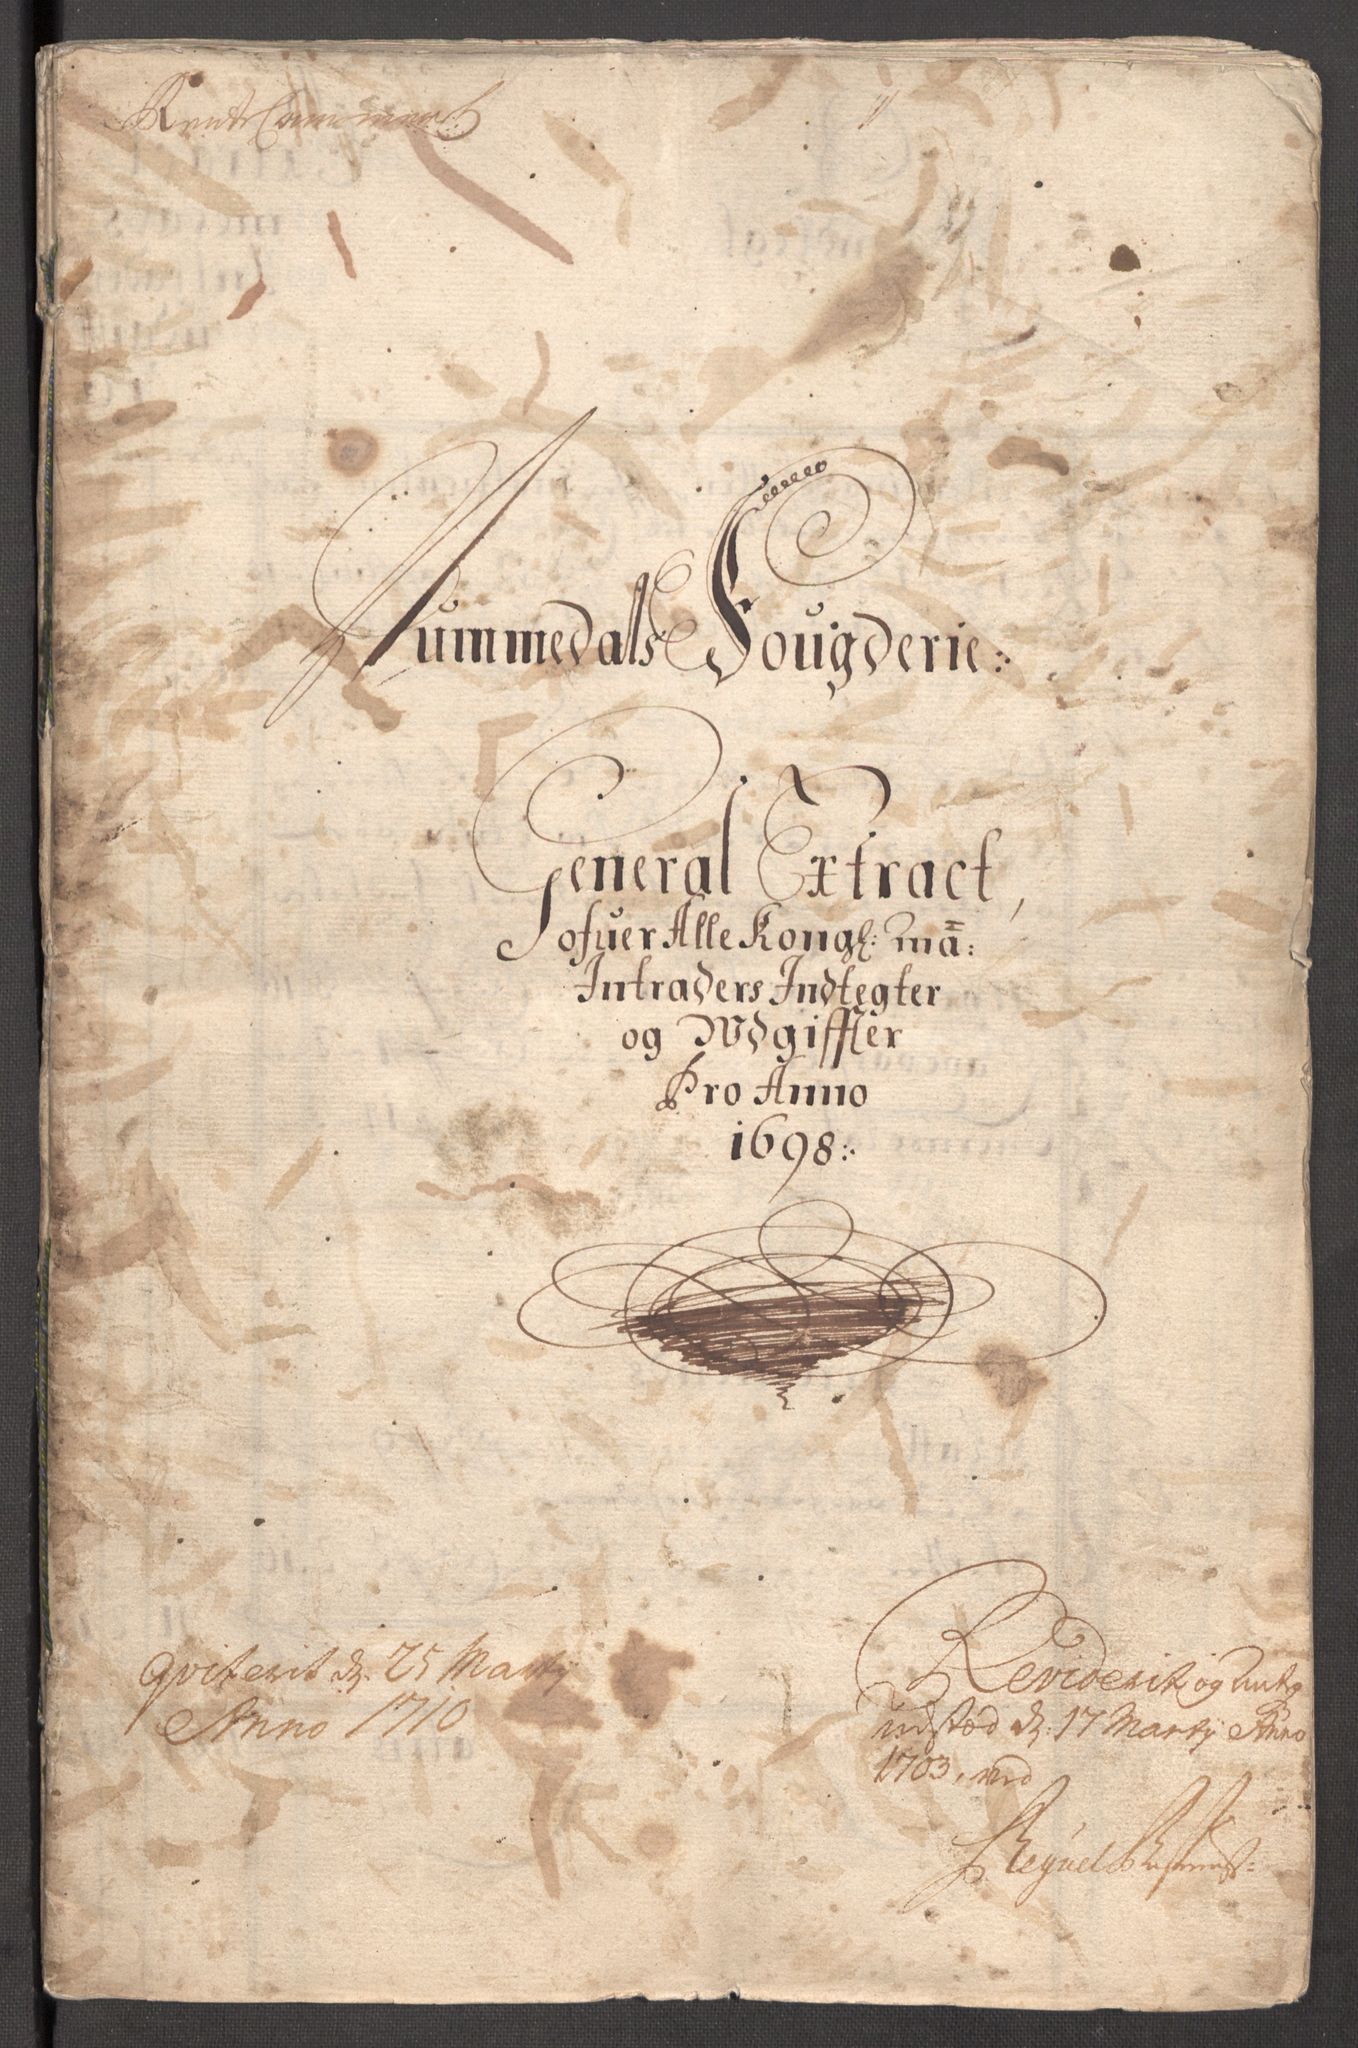 Rente Cammeret
Nummedals Fougderie:
General Extract,
ofuer Alle Kongl: Ma:
Intraders Indtegter
og Udgiffter
Pro Anno
1698:
qviterit d. 25 Marty
Anno 1710
Reviderit og Antg
udsted d: 17 Marty Anno
1703, ved